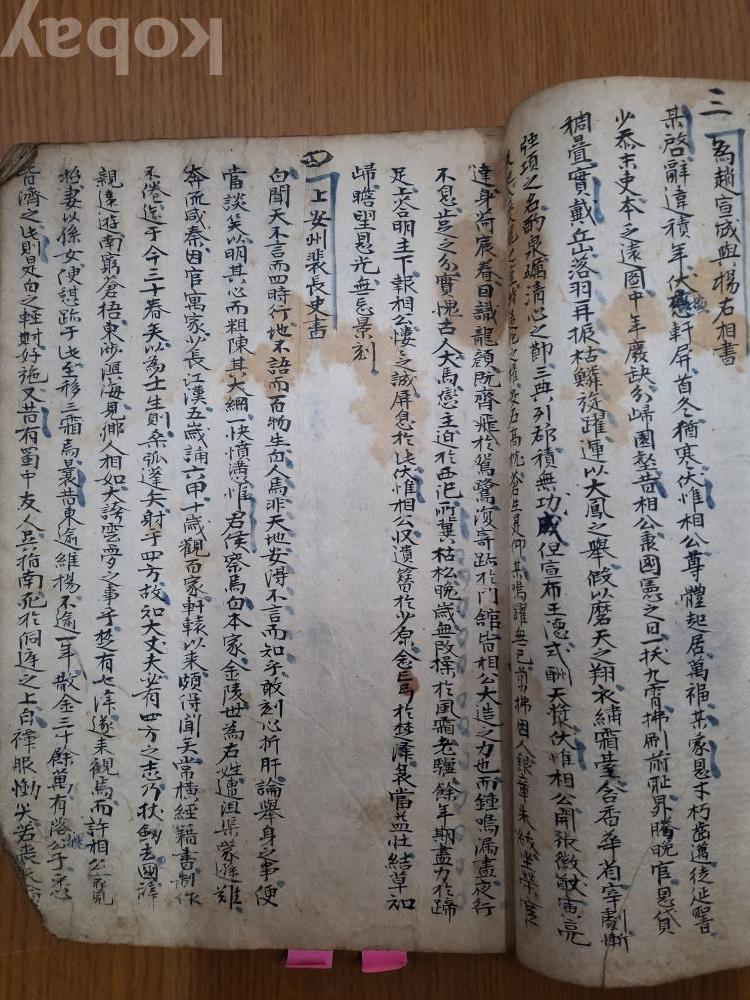 三
為趙宣城與楊右相書
某啓辭違積年伏戀軒屏首冬猶寒伏惟相公尊體起居萬福某家恩才朽齒邁徒延聖日
少忝末吏本乏遠圖中年廢缺分歸園壑昔相公秉國憲之日一拔九霄拂刷前恥昇騰晚官恩貸
稠疊實戴丘山落羽再振枯鱗旋躍運以大風之舉假以磨天之翔衣繡霜臺含香華省宰劇慚
強項之名酌泉礪清心之節三典列郡積無功成但宣布王澤式酬天獎伏惟相公開張徽猷寅亮
之室持造化之權安石高枕蒼生是仰某鳴躍無已剪拂因人銀章朱紱坐榮宦
達身荷宸眷目識龍顔既齊飛於鴛鷺復寄跡於門舘皆相公大造之力也而鍾鳴漏盡夜行
不息豈之分實愧古人犬馬戀主迫於西汜所冀枯松晩歲無改操於風霜老驥餘年期盡力於蹄
足上答明主下報相公悽之誠屏息於此伏惟相公収遺簪於少原念亡弓於楚澤衰當益壯結草知
歸瞻望恩光無忘景刻
四
上安州裴長史書
白聞天不言而四時行地不語而百物生白人焉非天地安得不言而知乎敢刻心折肝論舉身之事便
當談笑以明其心而粗陳其大綱一快憤懣惟君侯察焉白本家金陵世為右姓遭沮渠蒙遜難
奔流咸秦因官寓家少長江漢五歲誦六甲十歲觀百家軒轅以來頗得聞矣常橫經藉書制作
不倦迄于今三十春矣以為士生則桑弧蓬矢射于四方故知大丈夫必有四方之志乃杖劒去國辭
親遠遊南窮蒼梧東渉溟海見鄕人相如大誇雲夢之事乎楚有七澤遂来觀焉而許相公家見
招妻以孫女便憩跡于此至移三霜焉曩昔東遊維楊不逾一年散金三十餘萬有落公子悉
皆濟之此則是白之輕財好施又昔有蜀中友人呉指南死於洞庭之上白禫服慟哭若喪